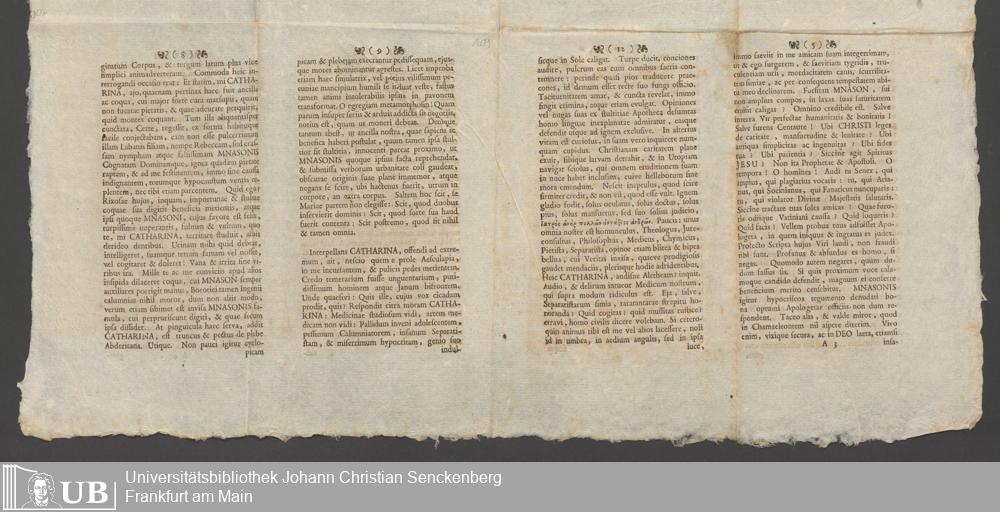 ( 8 )
ginatum Corpus, & tergum latum plus vice
simplici animadverteram. Commoda heic in-
terrogandi occasio erat: Et statim, mi CATHA-
RINA, ajo, quantum pertinax haec fuit ancilla
ac coqua, cui major forte cura marsupii, quam
non fucatae pietatis, & quae adcurate perquirit,
quid montes coquant. Tum illa aliquantisper
cunctata, Certe, regessit, ex forma habituque
facile conjectabam, eam non esse pulcerrimam
illam Libanis filiam, nempe Rebeccam, sed cras-
sam nympham atque falsissimam MNASONIS
Cognatam Dominamque, ignea quadam pietate
raptam, & ad me festinantem, immo sine causa
indignantem, totumque hypocaustum ventis re-
plentem, nec tibi etiam parcentem. Quid ego?
Rixosae hujus, inquam, importunae & stultae
coquae sua digitis beneficia metientis, aeque
ipsi quoque MNASONI, cujus favore est felix,
turpissime imperantis, fulmen & vultum, quo
te, mi CATHARINA, territare studuit, alias
derideo dentibus. Utinam mihi quid debeat,
intelligeret, suamque tetram famam vel nosset,
vel cogitaret & doleret! Vana & irrita sine vi-
ribus ira. Mille te ac me conviciis apud alios
insipida dilaceret coqua, cui MNASON semper
auxiliares porrigit manus, Bootoici tamen ingenii
calumnias nihil moror, dum non alios modo,
verum etiam sibimet est invisa MNASONIS fa-
mula, cui perpetuissent digiti, & quae secum
ipsa dissidet. At pinguicula haec serva, addit
CATHARINA, est truncus & pestus de plebe
Abderitana. Utique. Non pauci igitur cyclo-
picam
( 9 )
picam & plebejam execrantur pedissequam, ejus-
que mores abominantur agrestes. Licet improba
etiam haec simulatrix, vel potius vilissimum pe-
cuniae mancipium humili se induat veste, fastus
tamen animi intolerabilis ipsum in pavonem
transformat. O egregiam metamorphosin! Quam
parum insuper seriis & arduis addicta sit negotiis,
notius est, quam ut moneri debeat. Denique,
tantum abest, ut ancilla nostra, quae sapicta se
benefica haberi postulat, quam tamen ipsa stul-
tior sit stultitia, innocenti parcat proximo, ut
MNASONIS quoque ipsius facta reprehendat,
& submissa verborum urbanitate coli gaudeat,
obscurae originis suae plane immemor, atque
negans se scire, ubi hactenus fuerit, utrum in
corpore, an extra corpus. Saltem hoc scit, se
Mariae partem non elegisse: Scit, quod duobus
inservierit dominis: Scit, quod forte sua hand
fuerit contenta: Scit postremo, quod sit nihil
& tamen omnia.
Interpellans CATHARINA, offendi ad extre-
mum, ait, nescio quem e prole Aesculapia,
in me incusantem, & pulicis pedes metientem.
Credo tonsorarium fuisse unguentarium, puti-
dissimum hominem atque Janum bifrontem.
Unde quaeso? Quis ille, cujus vox cicadam
prodit, quis? Respondit citra moram CATHA-
RINA: Medicinae studiosum vidi, artem me-
dicam non vidi: Pallidum inveni adolescentem,
pessimum Calumniatorem, insanum Separati-
stam, & miserrimum hypocritam, genio suo
indul-
( 12 )
sieque in Sole caligat. Turpe ducit, conciones
audire, pulcrum eta cum omnibus sacris con-
temnere: perinde quasi pios traducere prae-
cones, id demum esset recte suo fungi officio.
Taciturnitatem amat, & cuncta revelat, immo
fingit crimina, atque eriam evulgat. Opiniones
vel nugas suas ex stultitiae Apotheca desumtas
homo linguae inexplanatae admiratur, easque
defendit uique ad ignem exclusive. In alterius
vitam est curiosus, in suam vero inquirere num-
quam cupidus. Christianum caritatem plane
exuit, sibique larvam detrahit, & in Utopiam
navigat sciolus, qui omnem eruditionem suam
in nuce habet inclusam, cuive hellebcrum sine
mora emendum. Nescit ineptulus, quod scire
firmiter credit, & non vis, quod esse vult. Ignem
gladio fodit, solus oculatus, solus doctus, solus
pius, solus mansuetus, sed suo solius judicio,
Paucis: unus
omnia noster est homunculus, Theologus, Jure-
consultus, Philosophus, Medicus, Chymicus,
Pietista, Separatista, opinor etiam blitea & bipes
bellua, cui Veritas invisa, quaeve prodigiosis
gaudet mendaciis, plerisque hodie adridentibus.
Huic CATHARINA, audisne Aletheam? inquit.
Audio, & delirum intueor Medicum nostrum,
qui supra modum ridiculus est. Eja, salve,
Separatistarum simia, tarantantarae strepitu ho-
noranda! Quid cogitas? quid mussitas rustice?
erravi, homo civilis dicere volebam. Si cetero-
quin animus tibi est me vel alios lacessere, noli
id in umbra, in aedium angulis, sed in ipsa
luce,
( 5 )
immo saeviit in me amicam suam integerrimam,
ut & ego surgerem, & saevitiam tygridis, tru-
culentiam ursi, mordacitatem canis, scurrilita-
tem simiae, ac per consequens tempestatem abi-
tu meo declinarem. Fuistian MNASON, sui
non amplius compos, in laxas suas saturitatem
emisit caligas? Omnino credibile est. Salve
interea Vir perfectae humanitatis & bonitatis!
Salve furens Centaure! Ubi CHRISTI leges
de caritate, mansuetudine & lenitate? Ubi
antiqua simplicitas ac ingenuitas? Ubi fides
tua? Ubi patientia? Siccine agit Spiritus
JESU? Non ita Prophetae & Apostoli. O
tempora! O homines! Audi tu Senex, qui
impius, qui plagiarius vocatis: tu, qui Aria-
nus, qui Socinianus, qui Fanaticus nuncuparis:
tu, qui violator Divinae Majestatis salutaris.
Siccine tractare tuas soles amicas? Quae furo-
ris odiique Vatiniani causa? Quid loqueris?
Quid facis? Vellem probus tous adfuisset Apo-
logeta, in quem iniquus & ingratus es judex.
Profecto Scripta hujus Viri laudi, non fraudi
tibi sunt. Profanus & absurdus es homo, si
negas. Quomodo autem negares, quum du-
dum fassus sis. Si quis proximum voce cala-
moque candido defendit, magnum ei conferre
beneficium merito censebitur. MNASONIS
igitur hypocriseos tegumento denudati bo-
na optumi Apologetae officiis non dum re-
spondent. Taceo alia, & valde miror, quod
in Chamaeleontem nil aspere dixerim. Vivo
enim, vixique secura, ac in DEO laeta, etiamsi
A 3
insa-
Universitätsbibliothek Johann Christian Senckenberg
Frankfurt am Main
UB